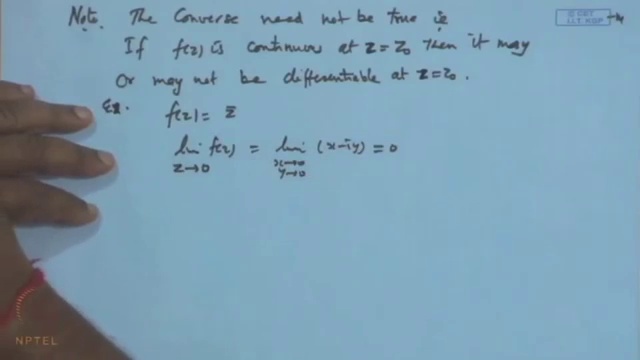 Note. The Converse need not be true ie
If f(z) is continuous at z=z₀ then it may
Or may not be differentiable at z=z₀.
Ex. f(z) = z̄
lim f(z) = lim (x-iy) = 0
z→0 x→0
y→0
© CET
I.I.T. KGP
NPTEL